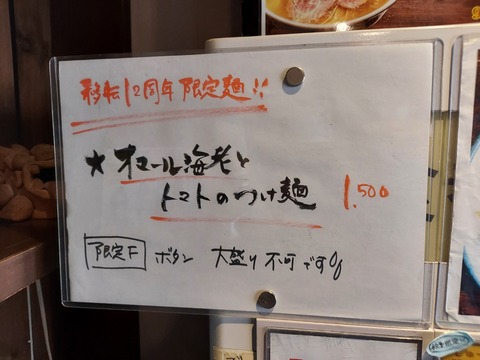 移転12周年限定麺!!
★オマール海老と
トマトのつけ麺 1,500
限定F ボタン 大盛り不可です。